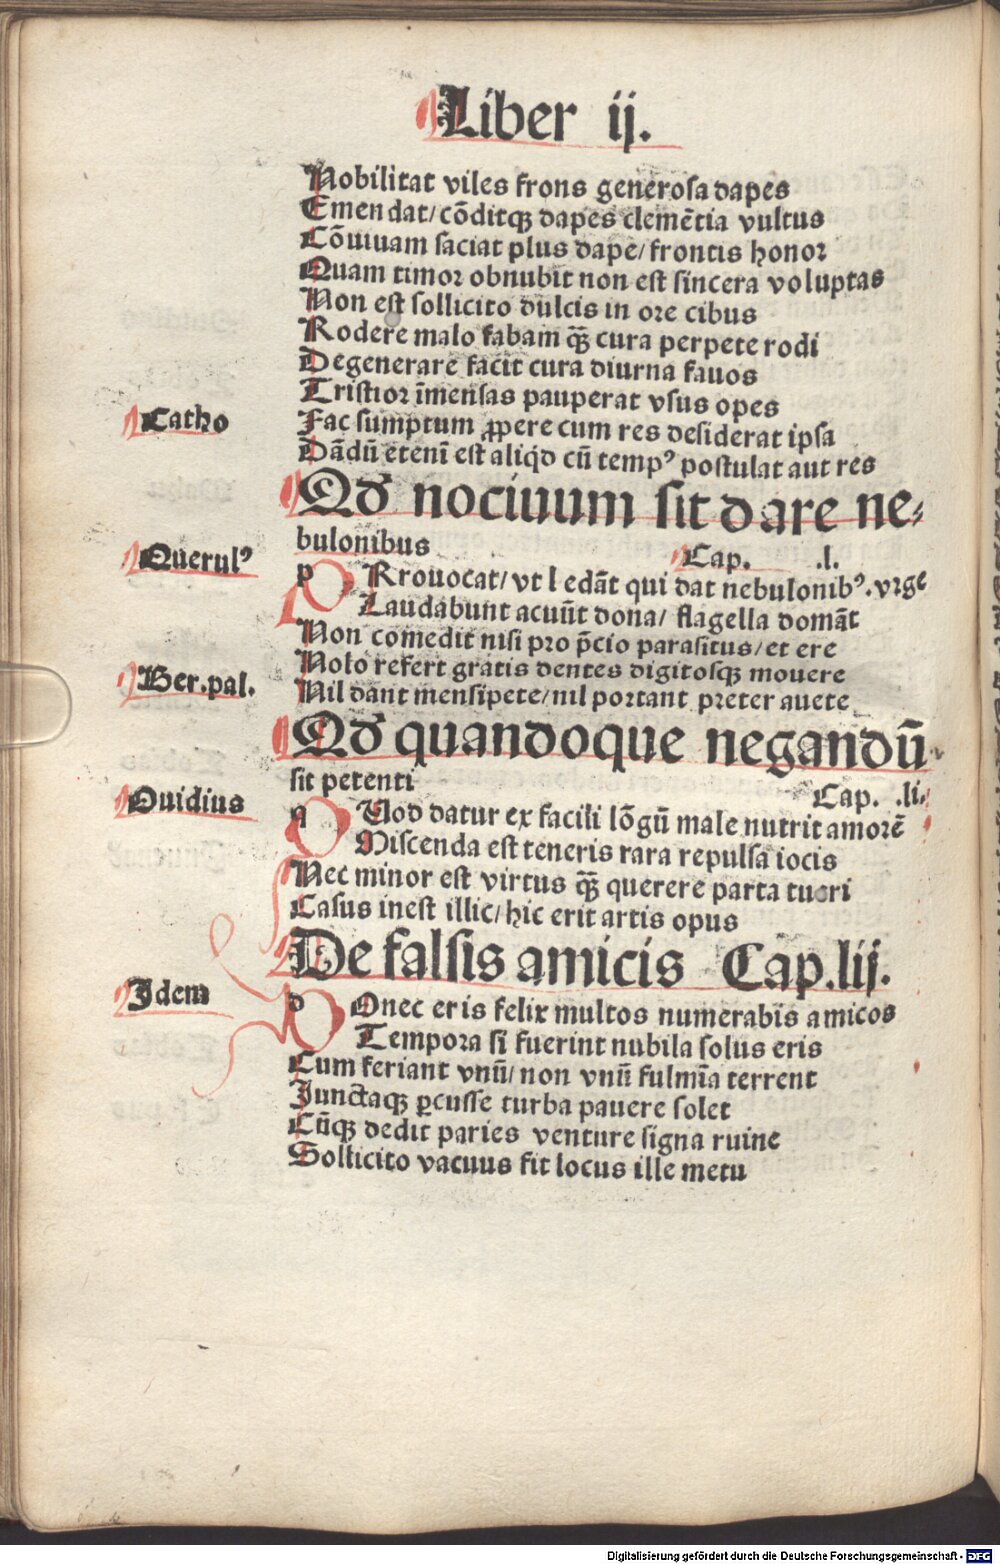 Liber ij.
Nobilitat viles frons generosa dapes
Emendat/ cōditqȝ dapes clemētia vultus
Cōuiuam saciat plus dape/ frontis honor
Quam timor obnubit non est sincera voluptas
Non est sollicito dulcis in ore cibus
Rodere malo fabam qȝ̄ cura perpete rodi
Degenerare facit cura diurna fauos
Tristior īmensas pauperat vsus opes
Catho
Fac sumptum ꝓpere cum res desiderat ipsa
Dādū etenī est aliqd cū tempꝰ postulat aut res
Qđ nociuum sit dare ne⸗
bulonibus
Cap. .l.
Querulꝰ
p Rrouocat/ vt ledāt qui dat nebulonibꝰ. vrge
Laudabunt acuūt dona/ flagella domāt
Non comedit nisi pro p̄cio parasitus/ et ere
Nolo refert gratis dentes digitosqȝ mouere
Ber.pal.
Nil dant mensipete/ nil portant preter auete
Qđ quandoque negandū
sit petenti
Cap. .li.
Ouidius
q Uod datur ex facili lōgū male nutrit amorē
Miscenda est teneris rara repulsa iocis
Nec minor est virtus qȝ̄ querere parta tueri
Casus inest illic/ hic erit artis opus
De falsis amicis Cap.lij.
Idem
d Onec eris felix multos numerabis amicos
Tempora si fuerint nubila solus eris
Cum feriant vnū/ non vnū fulmīa terrent
Junctaqȝ ꝑcusse turba pauere solet
Cūqȝ dedit paries venture signa ruine
Sollicito vacuus fit locus ille metu
Digitalisierung gefördert durch die Deutsche Forschungsgemeinschaft - DFG